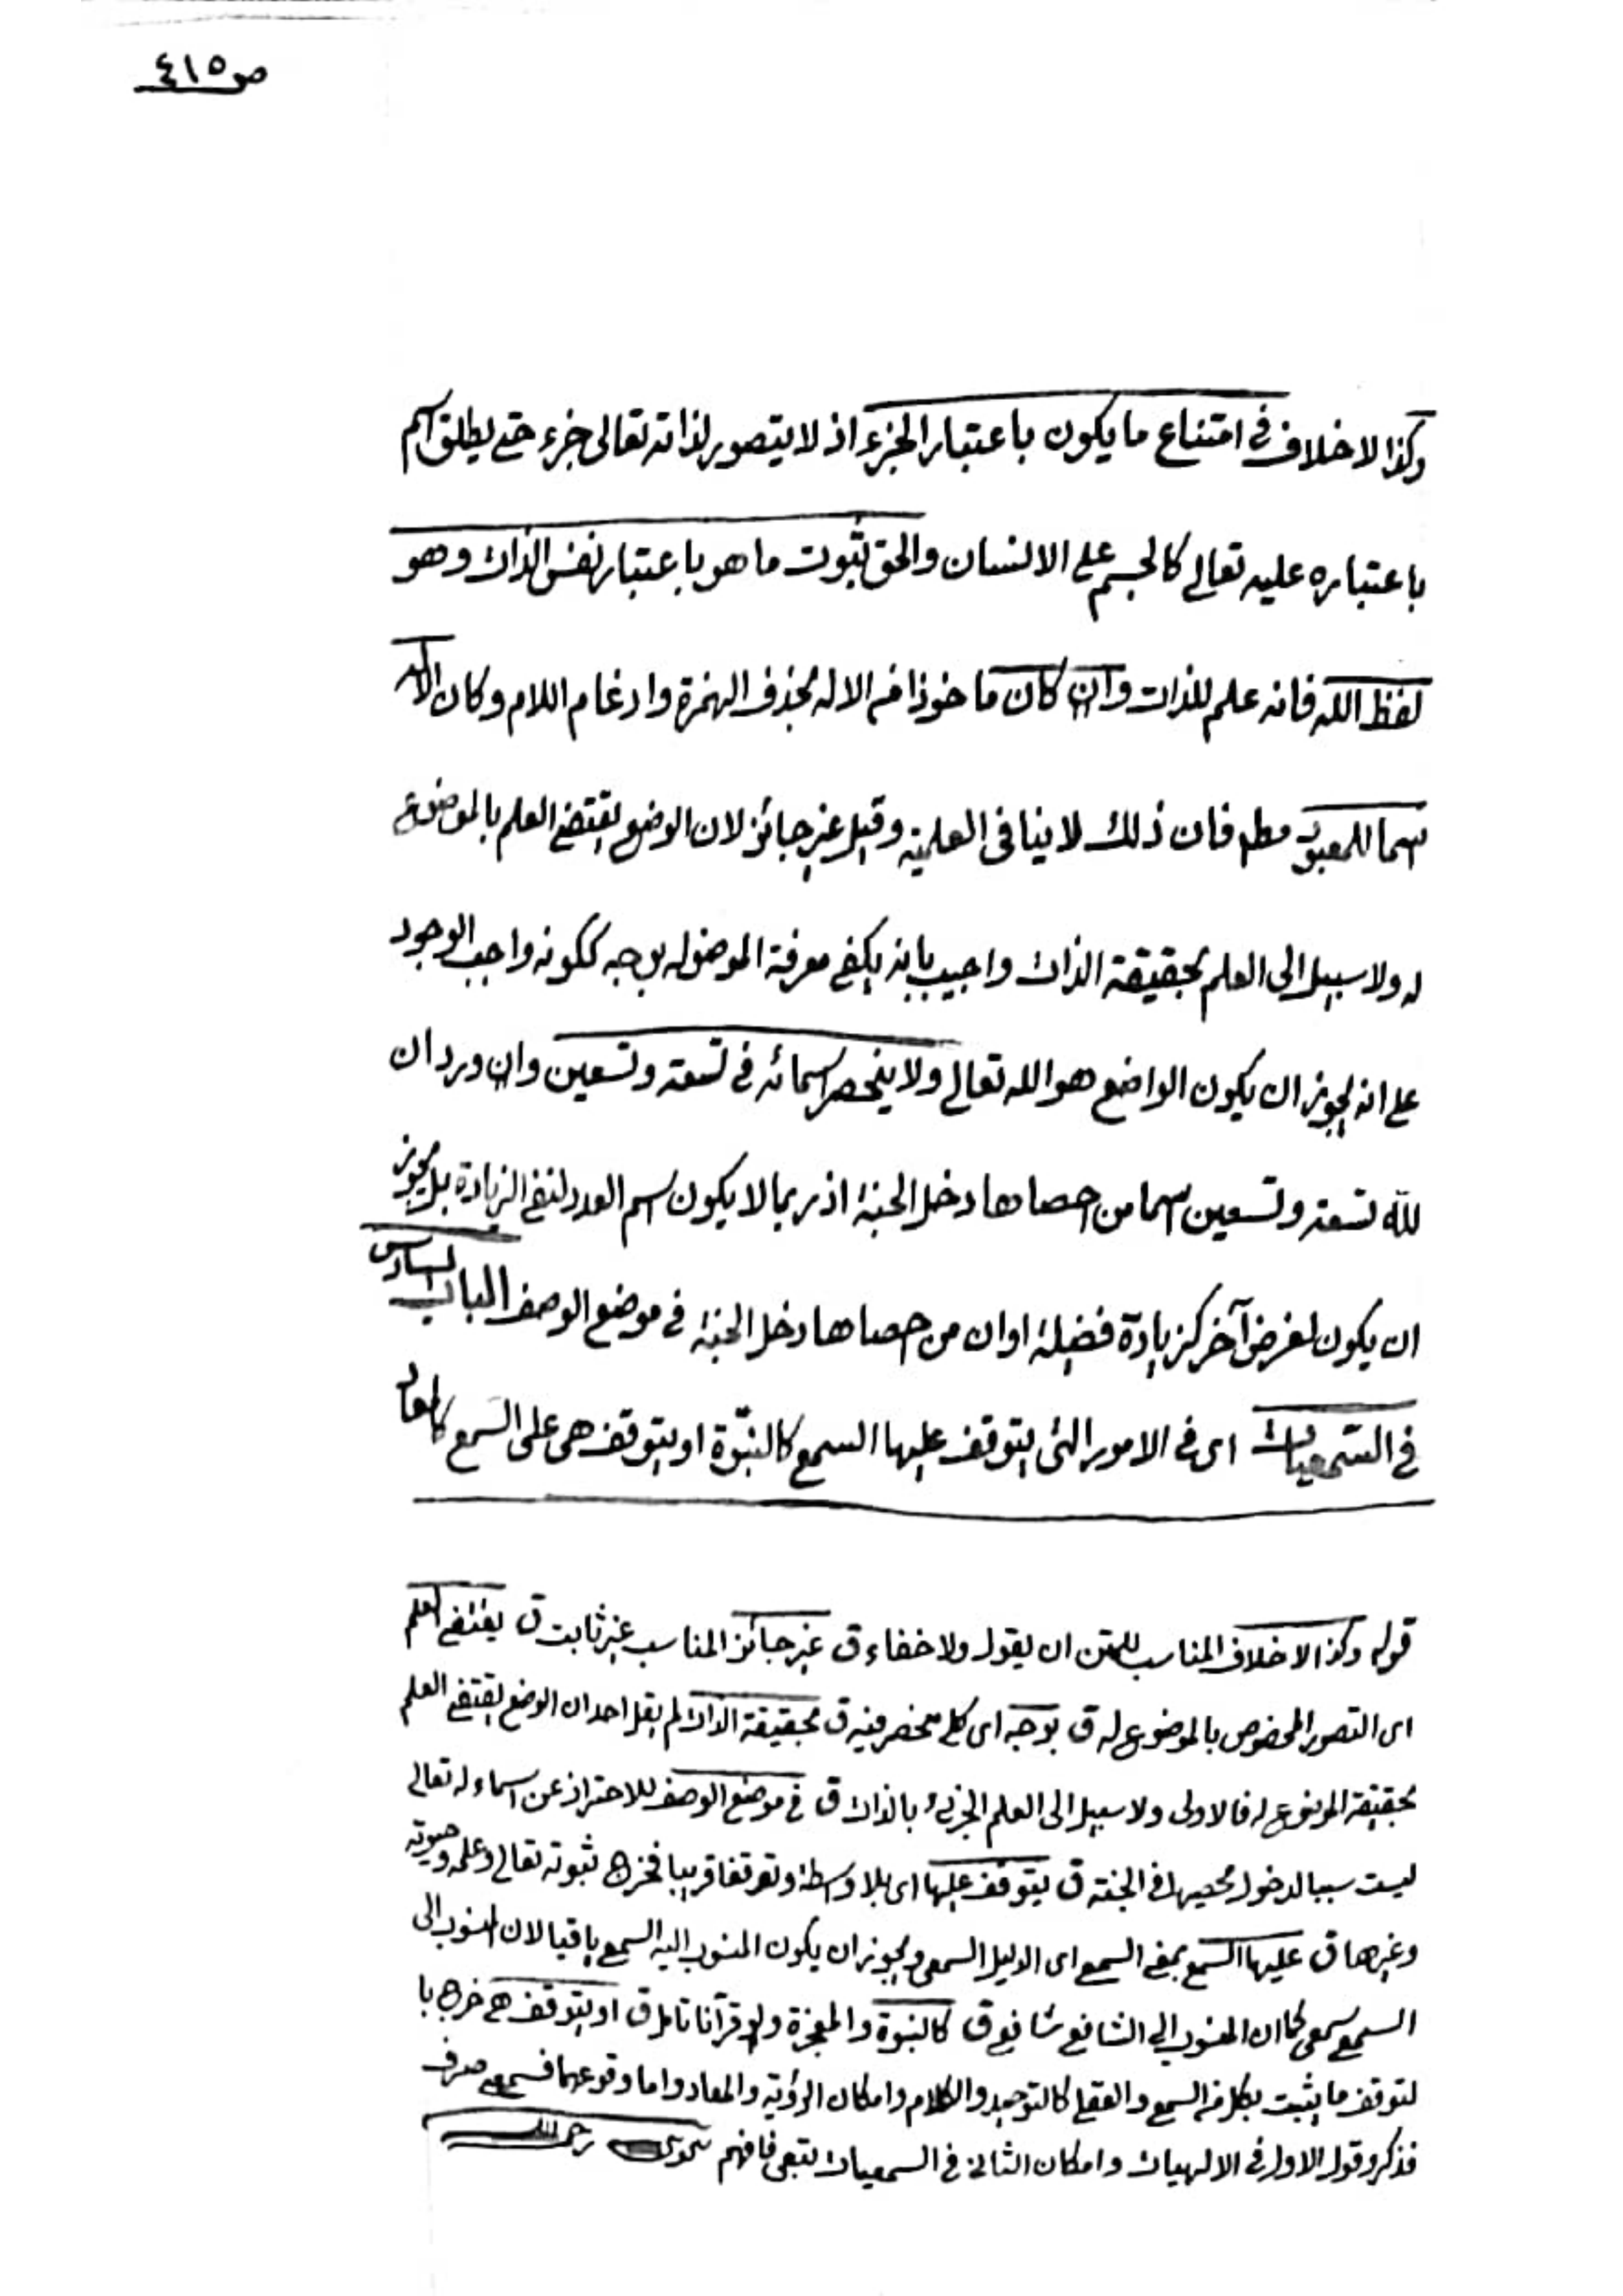 ص ٤١٥
وكذا لا خلاف في امتناع ما يكون باعتبار الجزء اذ لا يتصور لذاته تعالى جزء حتى يطلق اسم
باعتباره عليه تعالى كالجسم على الانسان والحق ثبوت ما هو باعتبار نفس الذات وهو
لفظ الله فانه علم للذات وان كان ماخوذا من الاله بحذف الهمزة وادغام اللام وكان الاله
اسما للمعبود مطلـ فان ذلك لا ينافى العلمية وقيل غير جائز لان الوضع يقتضى العلم بالموضوع
له ولا سبيل الى العلم بحقيقة الذات واجيب بانه يكفى معرفة الموضوله بوجه ككونه واجب الوجود
على انه يجوز ان يكون الواضع هو الله تعالى ولا ينحصر اسمائه فى تسعة وتسعين وان ورد ان
لله تسعة وتسعين اسما من احصاها دخل الجنة اذ ربما لا يكون اسم العدد لنفى الزيادة بل يجوز
ان يكون لغرض آخر كزيادة فضيلة او ان من احصاها دخل الجنة فى موضع الوصف الباب السادس
فى السمعيات اى فى الامور التى يتوقف عليها السمع كالنبوّة او يتوقف هى على السمع كالمعاد
قوله وكذا لا خلاف المناسب للمتن ان يقول ولا خفاء ق غير جائز المناسب غير ثابت ق يقتضى العلم
اى التصور المخصوص بالموضوع له ق بوجه اى كلى منحصر فيه ق بحقيقة الذات لم يقل احد ان الوضع يقتضى العلم
بحقيقة الموضوع له فالاولى ولا سبيل الى العلم الجزئى بالذات ق فى موضع الوصف للاحتراز عن اسماء له تعالى
ليست سببا لدخول محصيها فى الجنة ق يتوقف عليها اى بلا واسطة وتوقفا قريبا فخرج ثبوته تعالى وعلمه وحيوته
وغيرها ق عليها السمع بمعنى السمع اى الدليل السمعى ويجوز ان يكون المنسوب اليه السمع باقيا لان المنسوب الى
السمع سمعى كما ان المنسوب الى الشافعى شافعى ق كالنبوة والمعجزة ولو قرآنا تامل ق او يتوقف هى خرج با
لتوقف ما يثبت بكل من السمع والعقل كالتوحيد والكلام وامكان الرؤية والمعاد واما وقوعهما فسمعى صرف
فذكر وقوع الاول فى الالهيات وامكان الثانى فى السمعيات تبعى فافهم رحمه الله